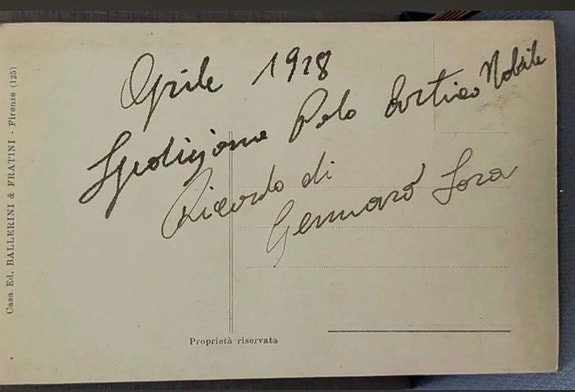 Aprile 1928
Spedizione Polo Artico Nobile
Ricordo di
Gennaro Sora
Casa Ed. BALLERINI & FRATINI - Firenze (125)
Proprietà riservata